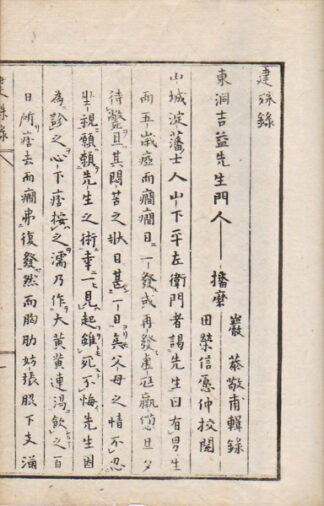 建殊録
東洞吉益先生門人
播磨
巖 恭敬甫輯録
田榮信愿仲校閲
山城淀藩士人山下平左衛門者謁先生曰有男生
而五歳瘂而癇癇日一發或再發虚尫羸憊旦夕
待斃且其悶苦之状日甚一日矣父母之情不忍
坐視願頼先生之術幸一見起雖死不悔先生因
為診之心下痞按之濡乃作大黄黄連湯飲之百
日所痞去而癇弗復發然而胸肋妨張脇下支滿
建殊録